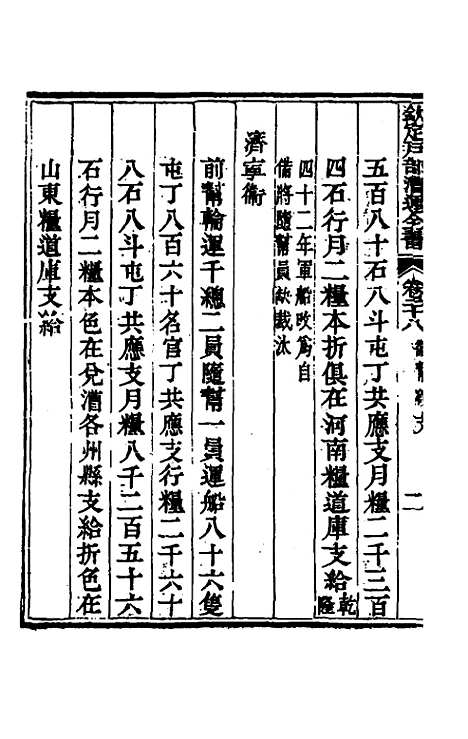 欽定戶部漕運全書 卷二十八 衛幫額支 二
五百八十石八斗屯丁共應支月糧二千三百
四石行月二糧本折俱在河南糧道庫支給乾隆
四十二年軍船改爲自
備將隨幫員缺裁汰
濟寧衛
前幫輪運千總二員隨幫一員運船八十六隻
屯丁八百六十名官丁共應支行糧二千六十
八石八斗屯丁共應支月糧八千二百五十六
石行月二糧本色在兌漕各州縣支給折色在
山東糧道庫支給